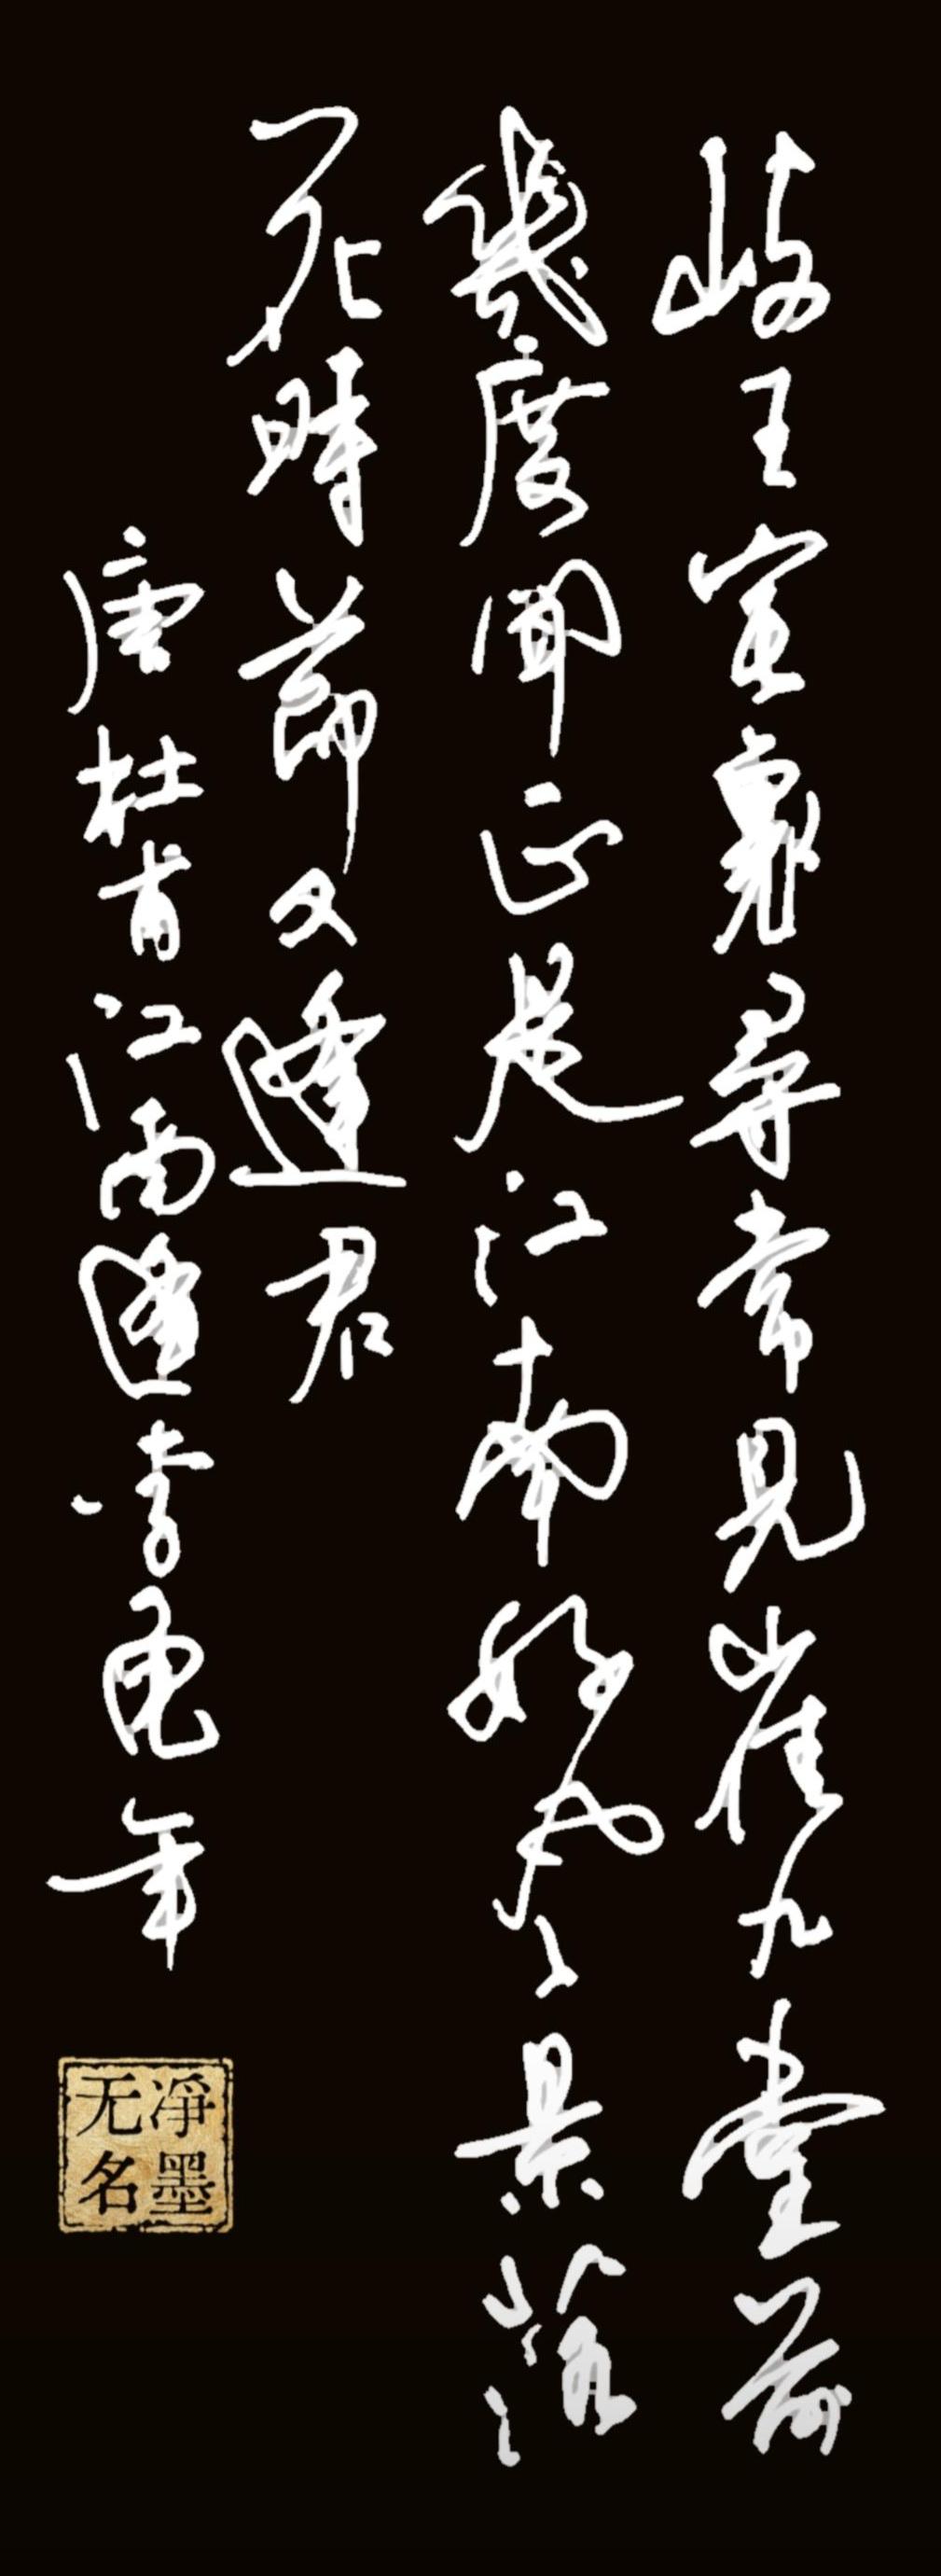 岐王室裏尋常見崔九堂前
幾度聞正是江南好風景落
花時節又逢君
唐杜甫江南逢李龜年
凈墨
无名